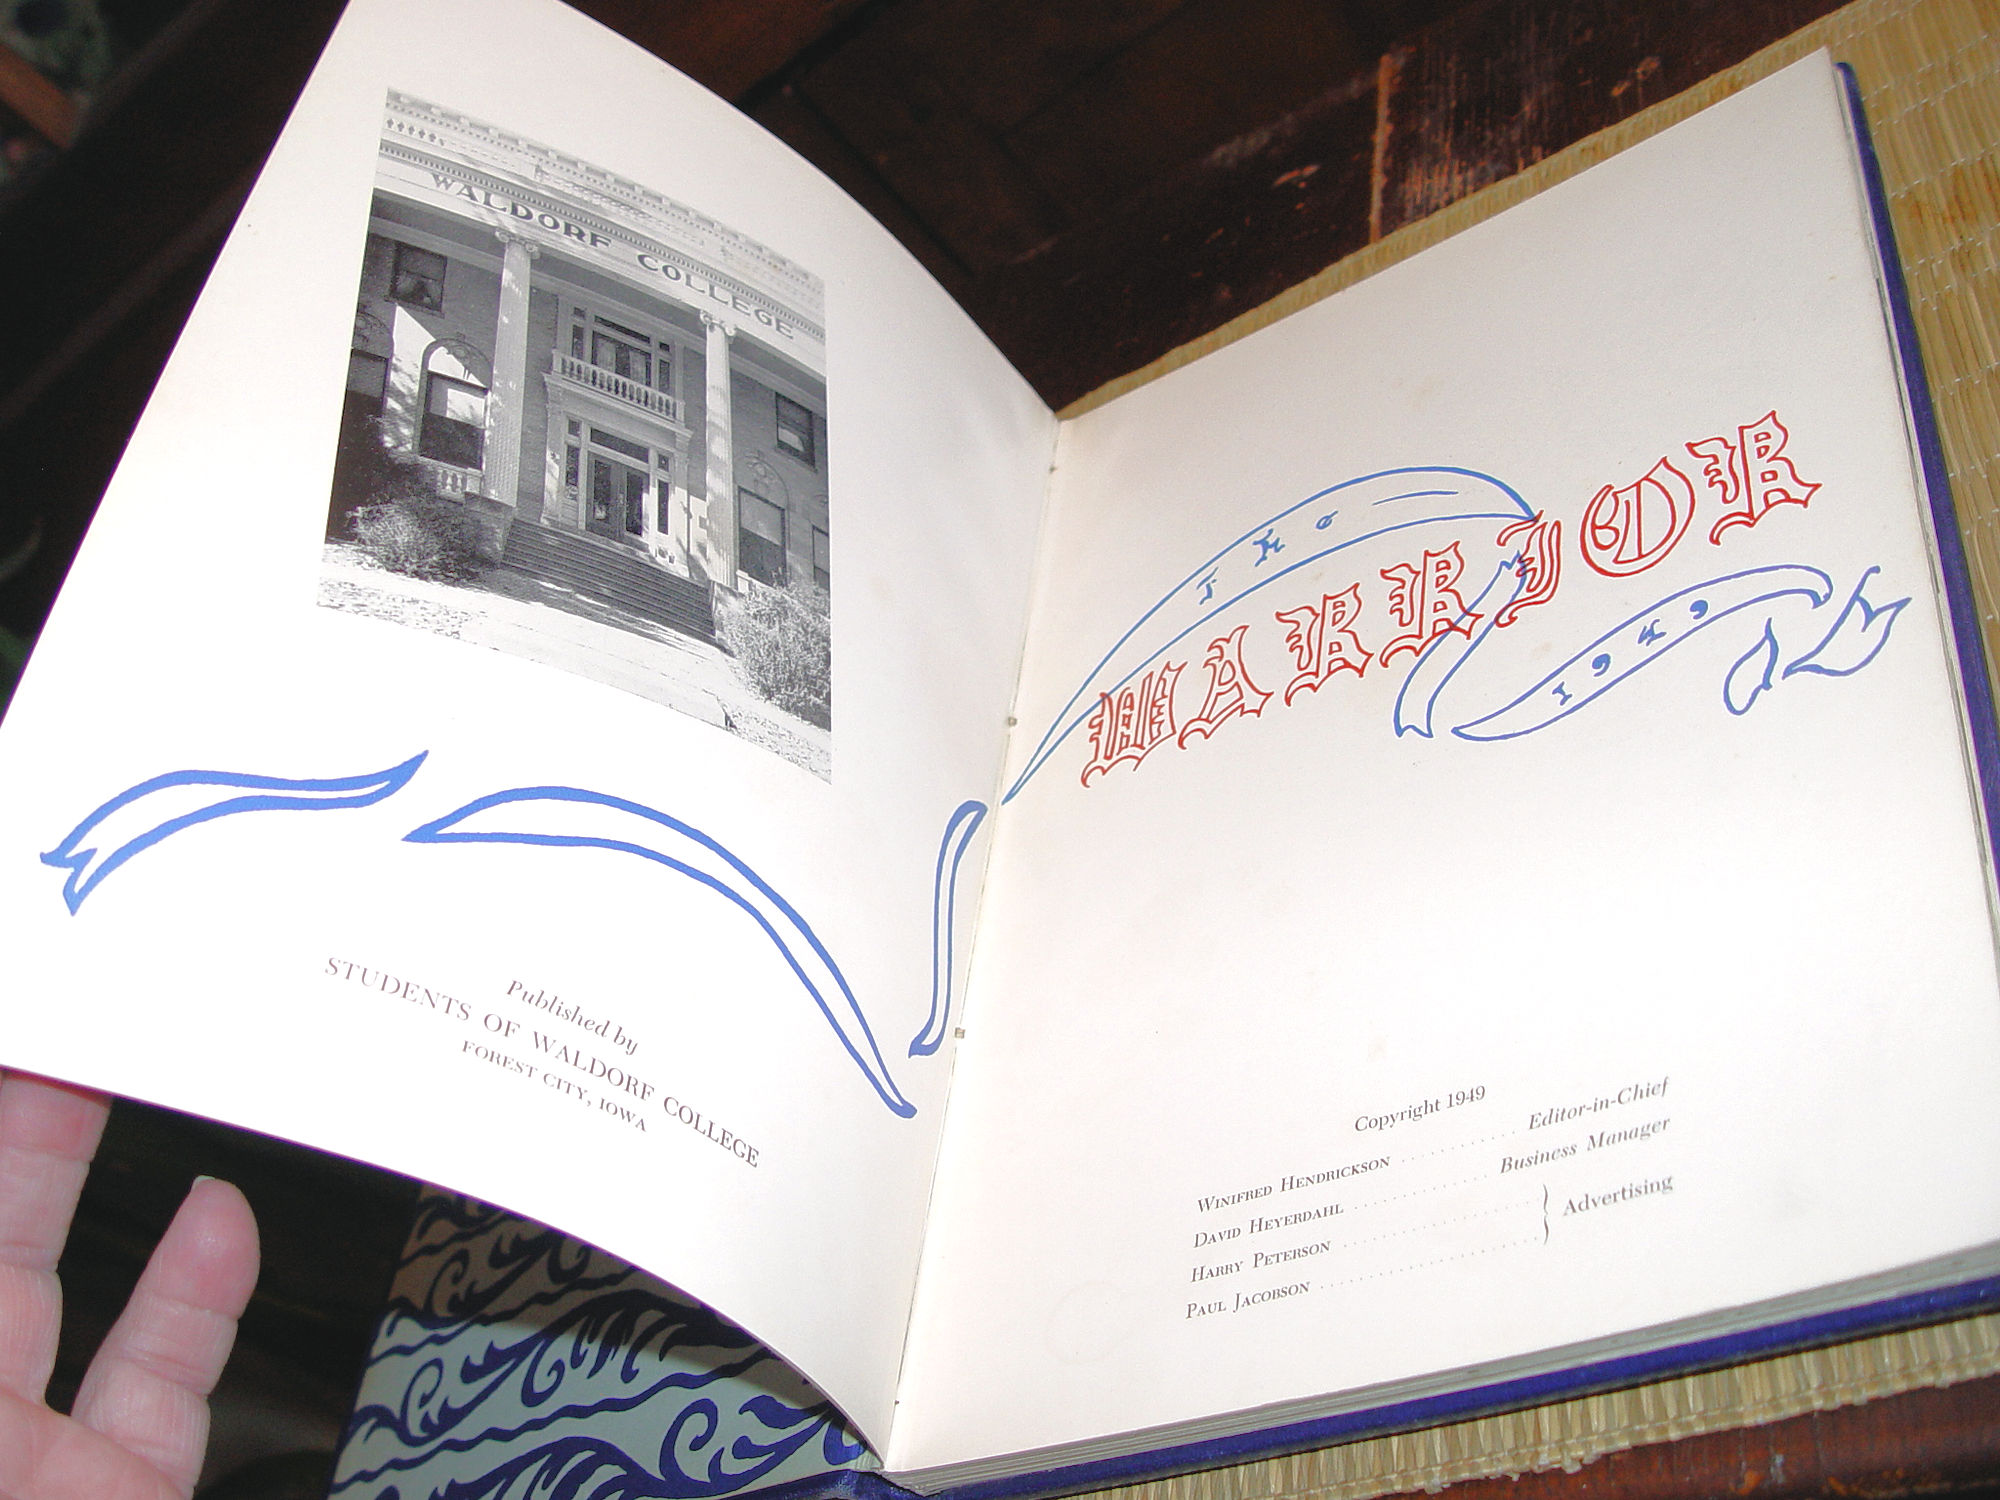 WALDORF COLLEGE
Published by
STUDENTS OF WALDORF COLLEGE
FOREST CITY, IOWA
THE
WARRIOR
1949
Copyright 1949
WINIFRED HENDRICKSON .......... Editor-in-Chief
DAVID HEYERDAHL .......... Business Manager
HARRY PETERSON ..........
PAUL JACOBSON .......... } Advertising